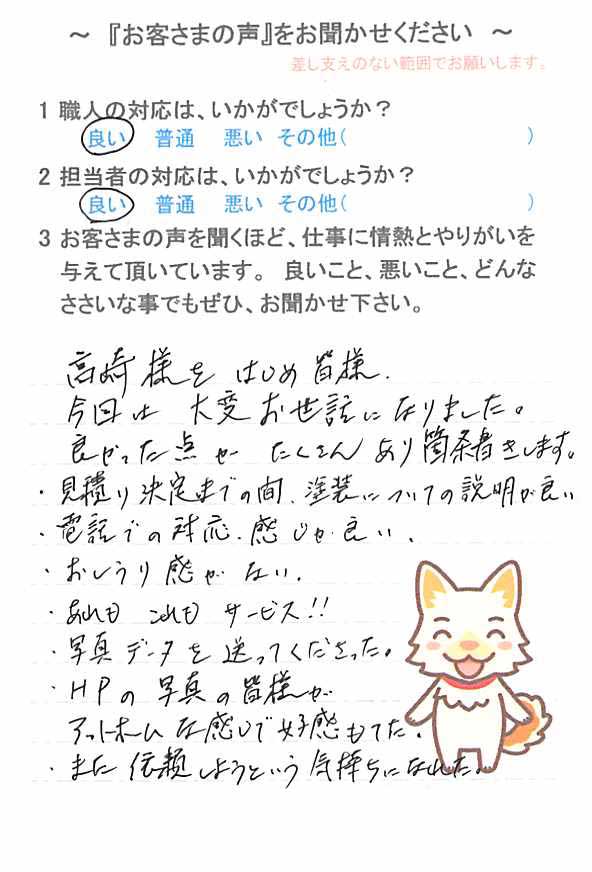 ～ 『お客さまの声』をお聞かせください ～
差し支えのない範囲でお願いします。
1 職人の対応は、いかがでしょうか？
良い 普通 悪い その他( )
2 担当者の対応は、いかがでしょうか？
良い 普通 悪い その他( )
3 お客さまの声を聞くほど、仕事に情熱とやりがいを
与えて頂いています。 良いこと、悪いこと、どんな
ささいな事でもぜひ、お聞かせ下さい。
高崎様をはじめ皆様、
今回は 大変お世話になりました。
良かった点が たくさんあり箇条書きします。
・見積り決定までの間、塗装についての説明が良い
・電話での対応、感じが良い、
・おしうり感がない、
・あれも これも サービス!!
・写真データを送ってくださった。
・HPの写真の皆様が
アットホームな感じで好感もてた。
・また依頼しようという気持ちになれた。